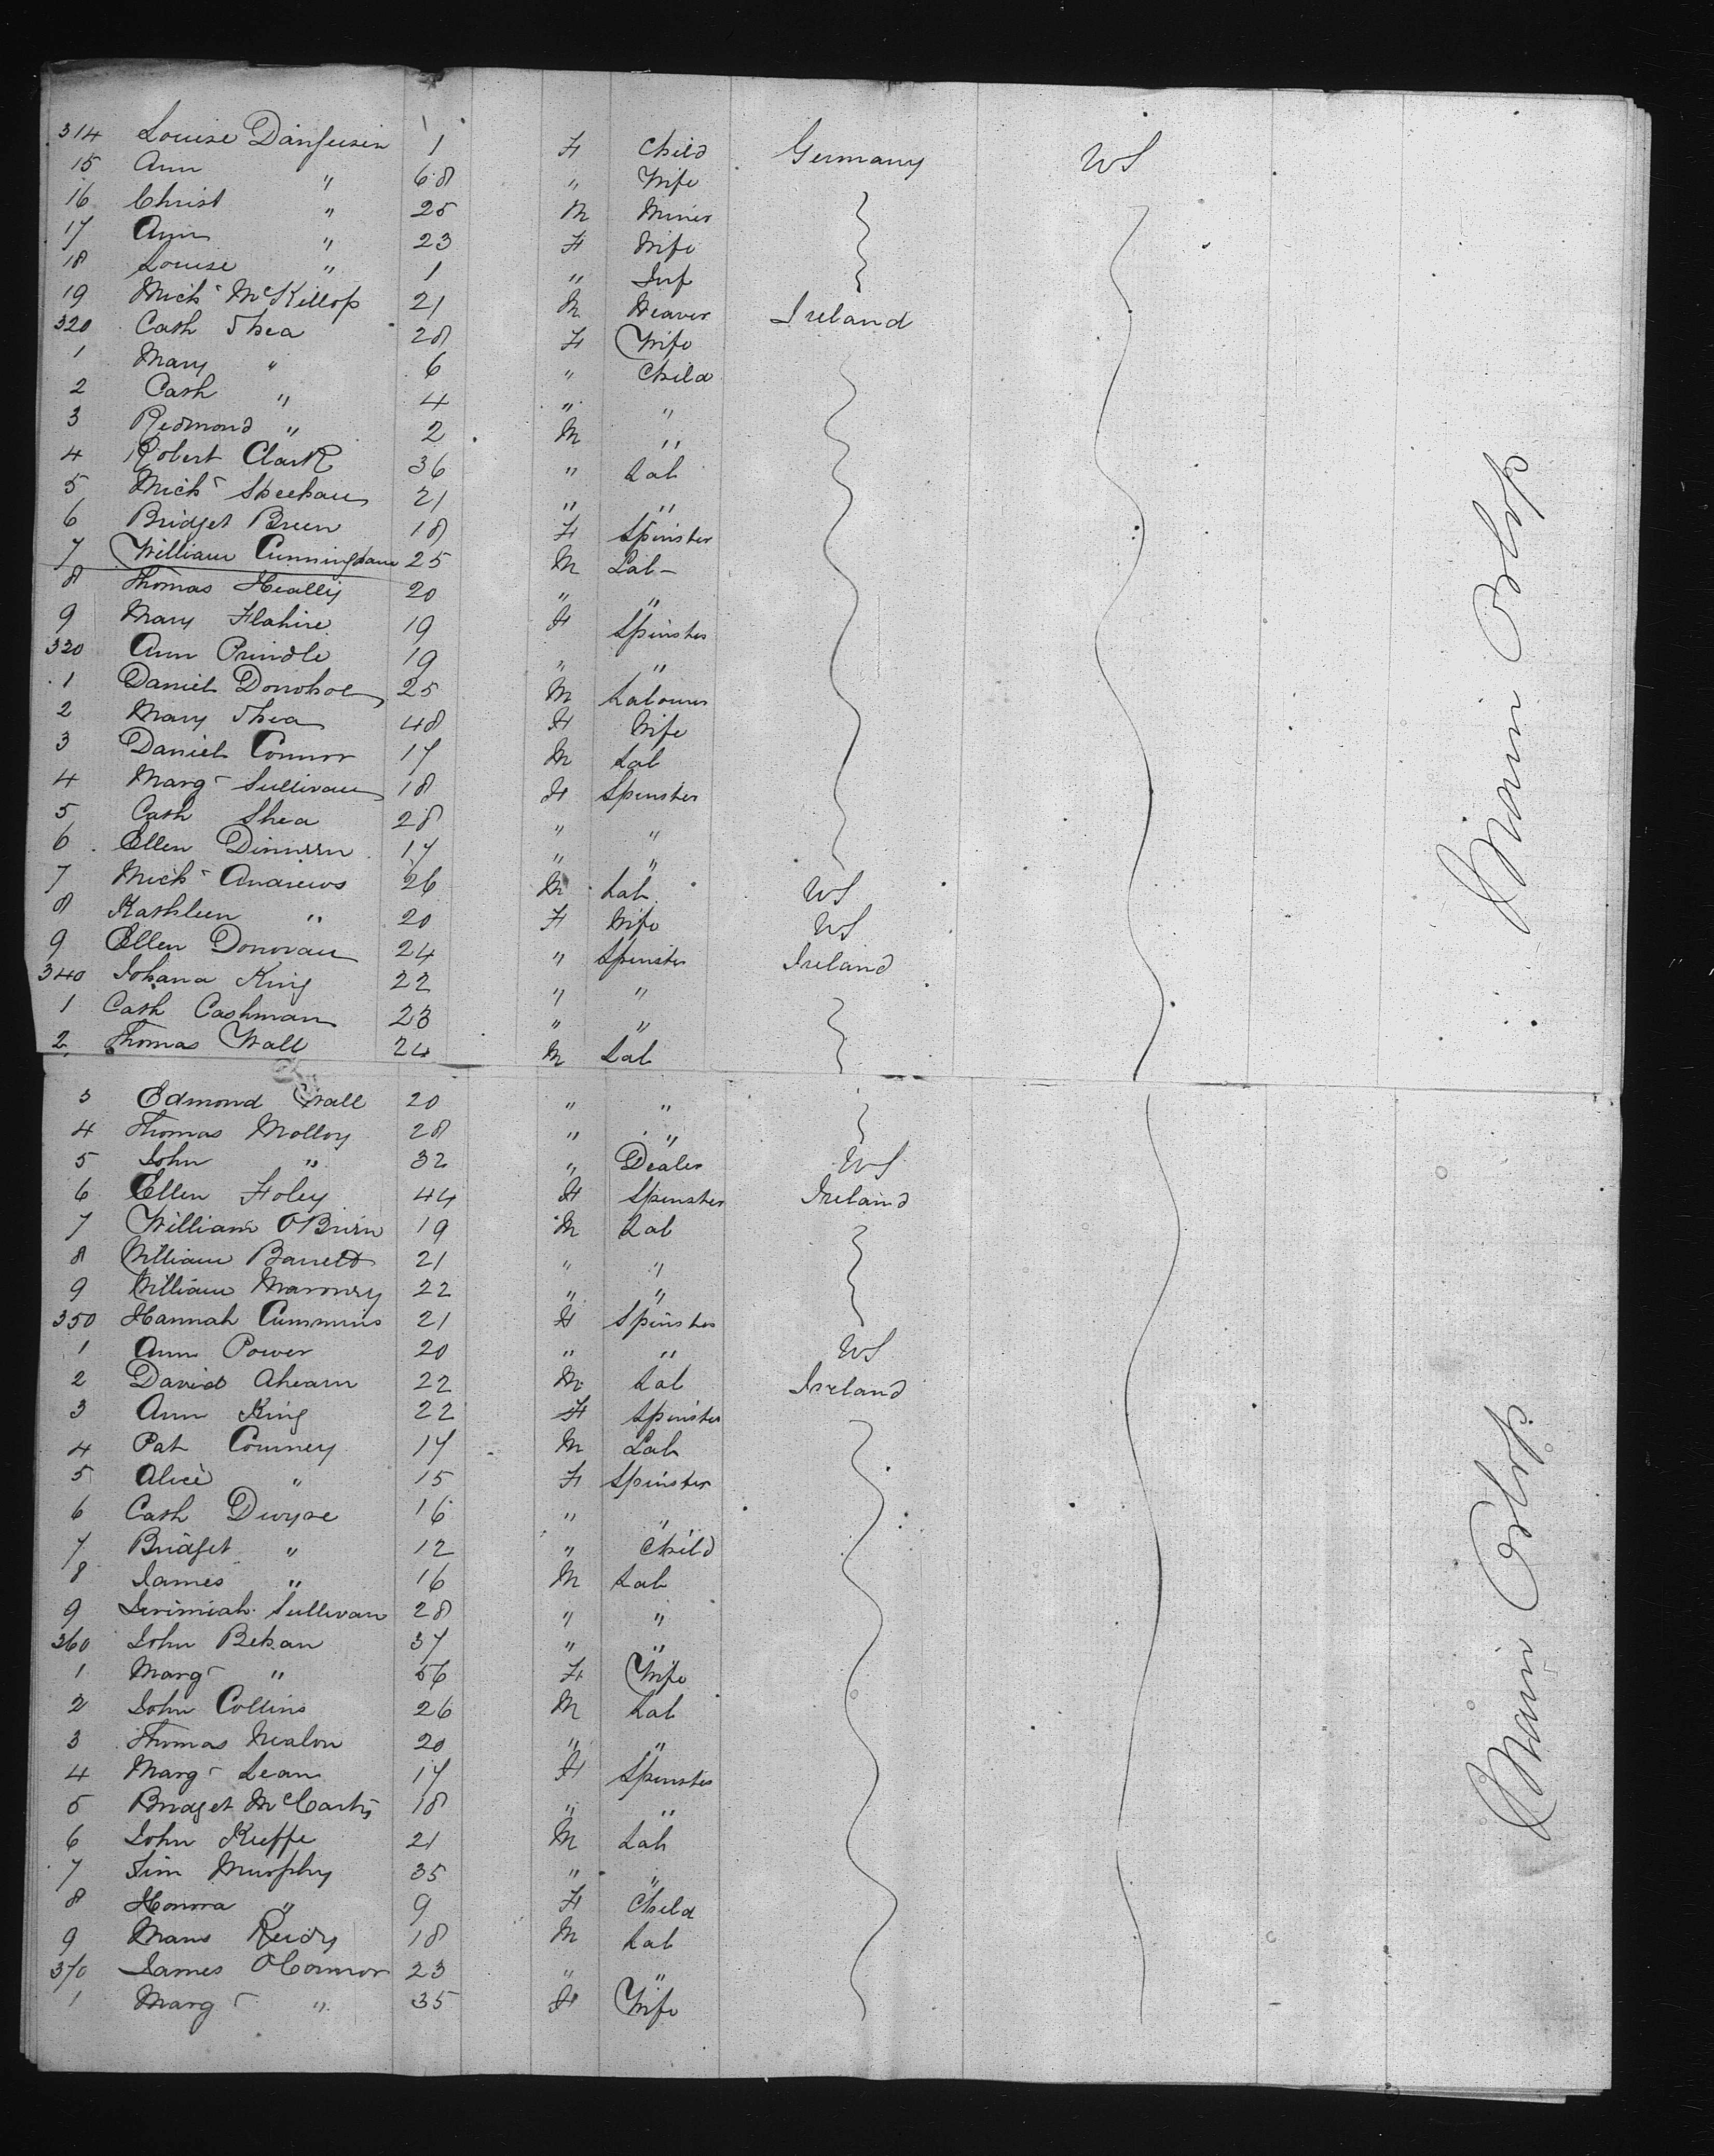 314 Louise Danfusin 1 F Child Germany US
15 Ann " 68 " Wife
16 Christ " 25 M Miner
17 Ann " 23 F Wife
18 Louise " 1 " Inf
19 Mich McKillop 21 M Weaver Ireland
320 Cath Shea 28 F Wife
1 Mary " 6 " Child
2 Cath " 4 " "
3 Redmond " 2 M "
4 Robert Clark 36 " Lab
5 Mich Sheehan 21 " "
6 Bridget Breen 18 F Spinster
7 William Cunningham 25 M Lab-
8 Thomas Heally 20 " "
9 Mary Flahive 19 F Spinster
320 Ann Prindle 19 " "
1 Daniel Donohoe 25 M Labourer
2 Mary Shea 48 F Wife
3 Daniel Connor 17 M Lab
4 Marg Sullivan 18 F Spinster
5 Cath Shea 28 " "
6 Ellen Dinneen 17 " "
7 Mich Andrews 26 M Lab US
8 Kathleen " 20 F Wife US
9 Ellen Donovan 24 " Spinster Ireland
340 Johana King 22 " "
1 Cath Cashman 23 " "
2 Thomas Wall 24 M Lab
Main Body
3 Edmond Wall 20 " "
4 Thomas Molloy 28 " "
5 John " 32 " Dealer US
6 Ellen Foley 44 F Spinster Ireland
7 William OBrien 19 M Lab
8 William Barrett 21 " "
9 William Maroney 22 " "
350 Hannah Cummins 21 F Spinster
1 Ann Power 20 " " US
2 David Ahearn 22 M Lab Ireland
3 Ann King 22 F Spinster
4 Pat Courney 17 M Lab
5 Alice " 15 F Spinster
6 Cath Dwyre 16 " "
7 Bridget " 12 " Child
8 James " 16 M Lab
9 Jerimiah Sullivan 28 " "
360 John Behan 37 " "
1 Marg " 56 F Wife
2 John Collins 26 M Lab
3 Thomas Nealon 20 " "
4 Marg Lean 17 F Spinster
5 Bridget McCarty 18 " "
6 John Keeffe 21 M Lab
7 Jim Murphy 35 " "
8 Honora " 9 F Child
9 Maus Reidy 18 M Lab
370 James OConnor 23 " "
1 Marg " 35 F Wife
Main Body